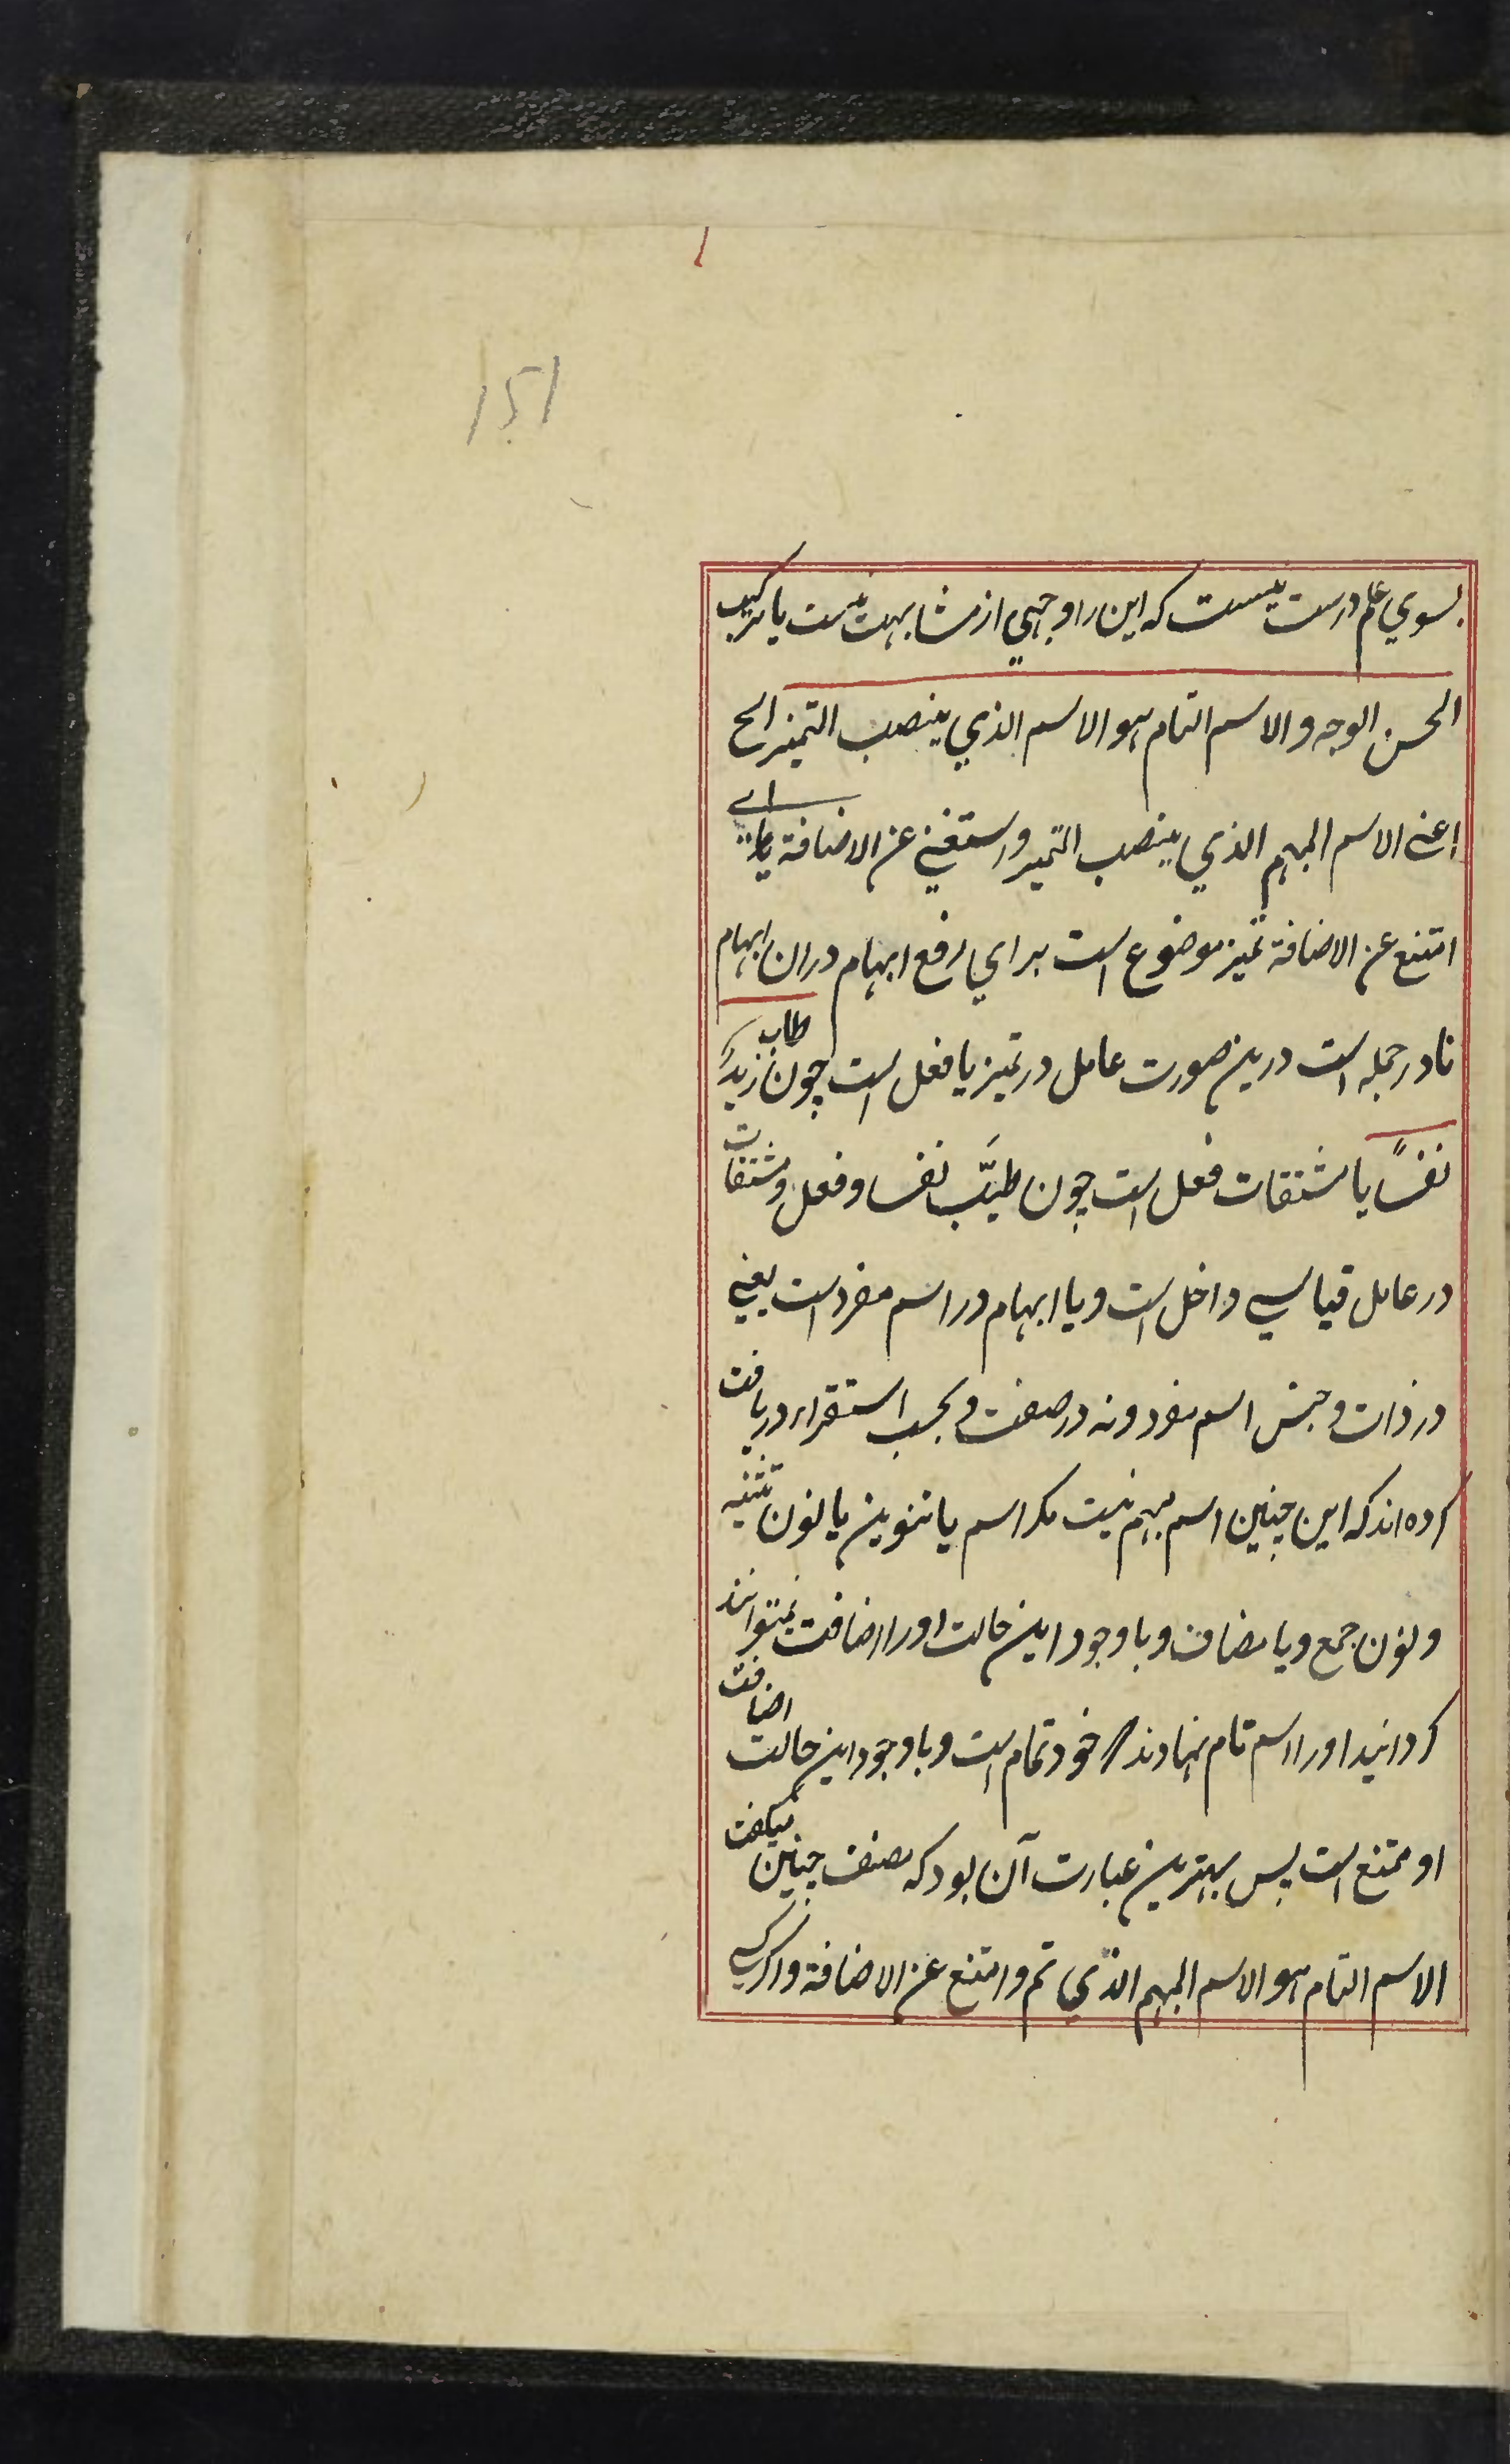 151
بسوي علم درست نیست که این را وجهي از مشابهت نیست یا ترکیب
الحسن الوجه والاسم التام هو الاسم الذي ینصب التمیز الخ
اعنے الاسم المبهم الذي ینصب التمیز واستغنے عن الاضافة اے
امتنع عن الاضافة تمیز موضوع است براي رفع ابهام دران ابهام
نا در جمله است درین صورت عامل در تمیز یا فعل است چون طاب زیدٌ
نفسًا یا مشتقات فعل است چون طیّب نفسا و فعل و مشتقات
در عامل قیاسي داخل است و یا ابهام در اسم مفرد است یعنے
در ذات و جنس اسم مفرد و نه در صفت و بحسب استقراء دریافت
کرده اند که این چنین اسم مبهم نیست مکر اسم با تنوین یا نون تثنیه
و نون جمع و یا مضاف و با وجود این حالت او را اضافت نمیتوانند
کردانید او را اسم تام نهادند خود تمام است و با وجود این حالت اضافت
او ممتنع است پس بهترین عبارت آن بود که مصنف چنین میکفت
الاسم التام هو الاسم المبهم الذي تم وامتنع عن الاضافة و اکر کسے